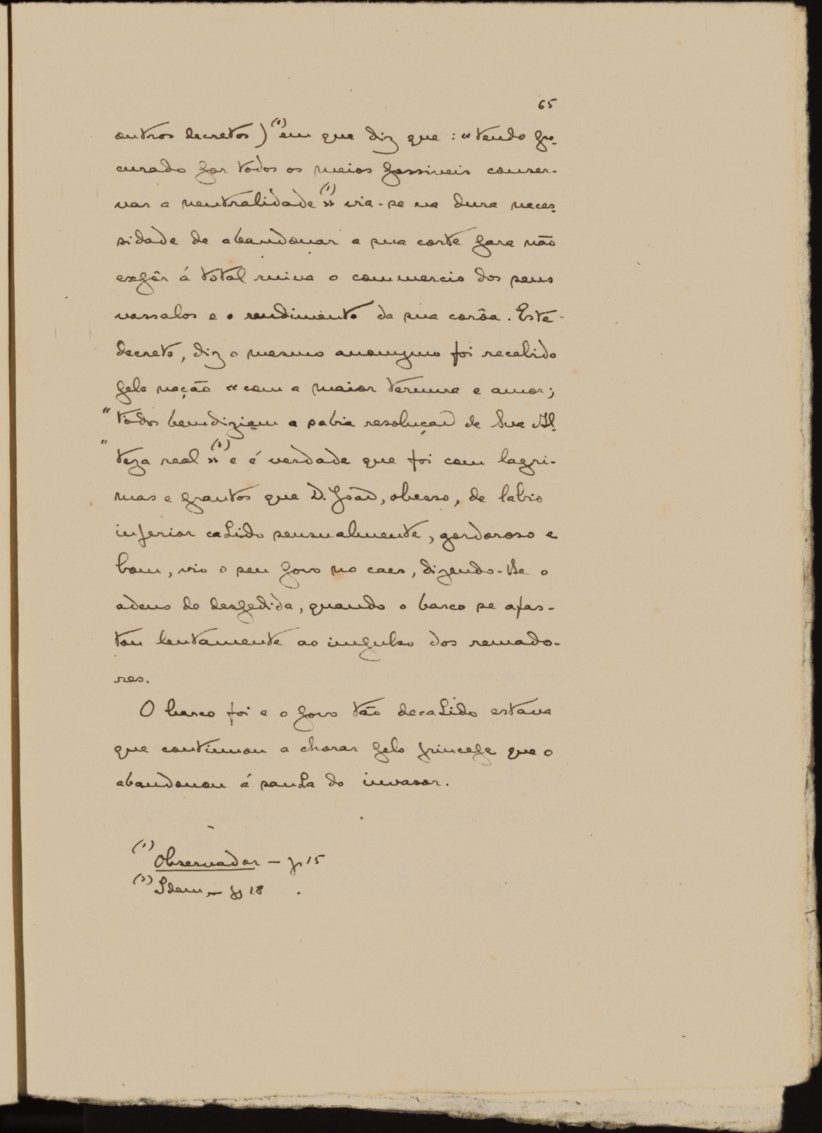 65
outros decretos) (1) em que diz que : «tendo pro-
curado por todos os meios possiveis conser-
var a neutralidade (1)» via-se na dura neces-
sidade de abandonar a sua corte para não
expôr á total ruina o commercio dos seus
vassalos e o rendimento da sua corôa. Este
decreto, diz o mesmo anonymo foi recebido
pela nação «com a maior ternura e amor;
"todos bemdiziam a sabia resolução de Sua Al-
"teza real» (2) e é verdade que foi com lagri-
mas e prantos que D. João, obeso, de labio
inferior cahido sensualmente, gorduroso e
bom, vio o seu povo no caes, dizendo-lhe o
adeus de despedida, quando o barco se afas-
tou lentamente ao impulso dos remado-
res.
O barco foi e o povo tão decahido estava
que continuou a chorar pelo principe que o
abandonou á sanha do invasor.
(1) Observador – p 15
(2) Idem, – p 18 .